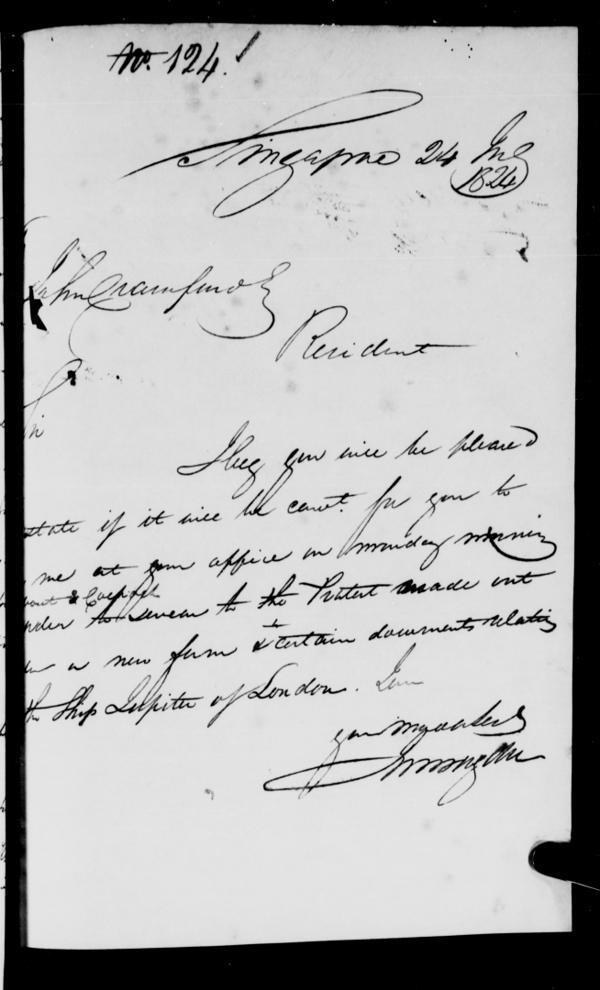 No. 124.
Singapore 24
1824
John Crawfurd
Resident
I beg you will be pleased
state if it will be cont. for you to
me at your office on monday morning
to swear to the Protest made out
in a new form & to certain documents relating
the Ship Jupiter of London. I am
your